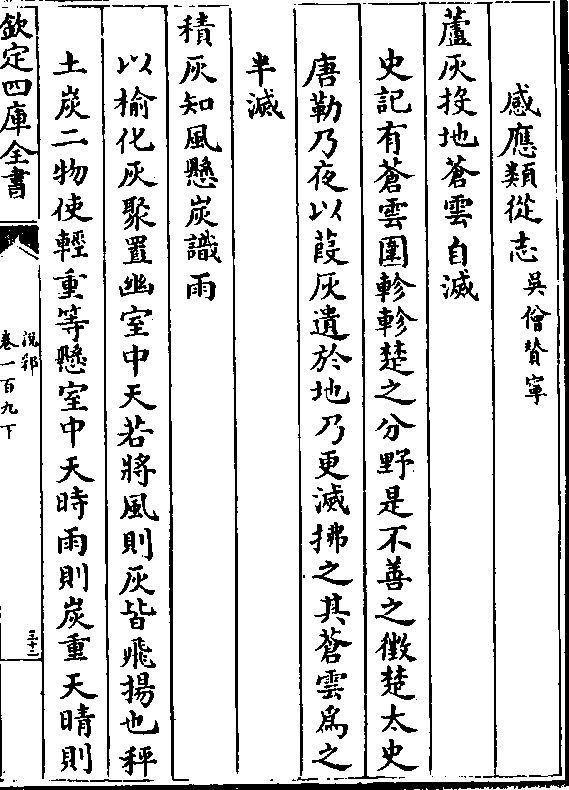 感應類從志 吳僧贊寧
蘆灰投地蒼雲自滅
史記有蒼雲圍軫軫楚之分野是不善之徵楚太史
唐勒乃夜以葭灰遺於地乃更滅拂之其蒼雲為之
半滅
積灰知風懸炭識雨
以榆化灰聚置幽室中天若將風則灰皆飛揚也秤
土炭二物使輕重等懸室中天時雨則炭重天晴則
欽定四庫全書
說郛
卷一百九下
三十二